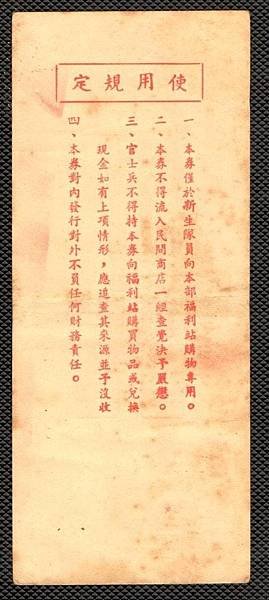 使用規定
一、本券僅於新生隊員向本部福利站購物專用。
二、本券不得流入民間商店一經查覺決予嚴懲。
三、官士兵不得持本券向福利站購買物品或兌換
現金如有上項情形，應追查其來源並予沒收
四、本券對內發行對外不負任何財務責任。